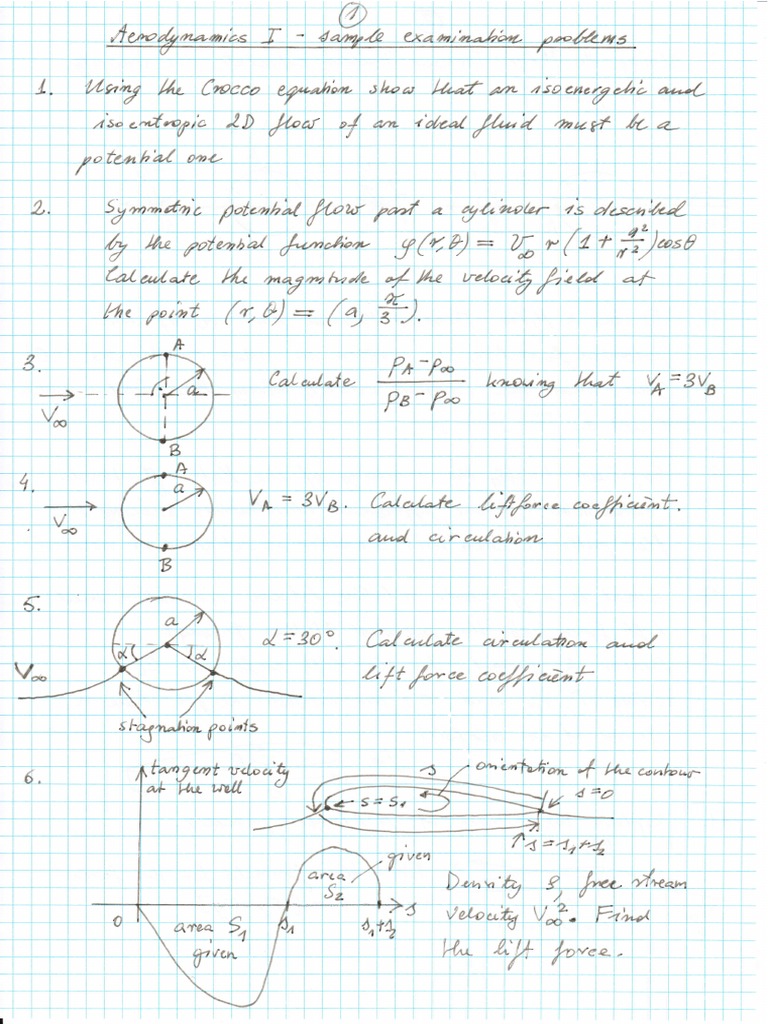 1
Aerodynamics I - sample examination problems
1. Using the Crocco equation show that an isoenergetic and
isoentropic 2D flow of an ideal fluid must be a
potential one
2. Symmetric potential flow past a cylinder is described
by the potential function φ(r,θ) = V∞ r (1 + a²/r²) cosθ
Calculate the magnitude of the velocity field at
the point (r,θ) = (a, π/3).
3.
A
a
V∞
B
Calculate (pA - p∞)/(pB - p∞) knowing that VA = 3VB
4.
A
a
V∞
B
VA = 3VB. Calculate lift force coefficient.
and circulation
5.
a
α
α
V∞
α = 30°. Calculate circulation and
lift force coefficient
stagnation points
6.
tangent velocity
at the wall
s
orientation of the contour
s = s1
s = 0
s = s1+s2
given
area
S2
0
area S1
given
s1
s1+s2
s
Density ρ, free stream
velocity V∞². Find
the lift force.